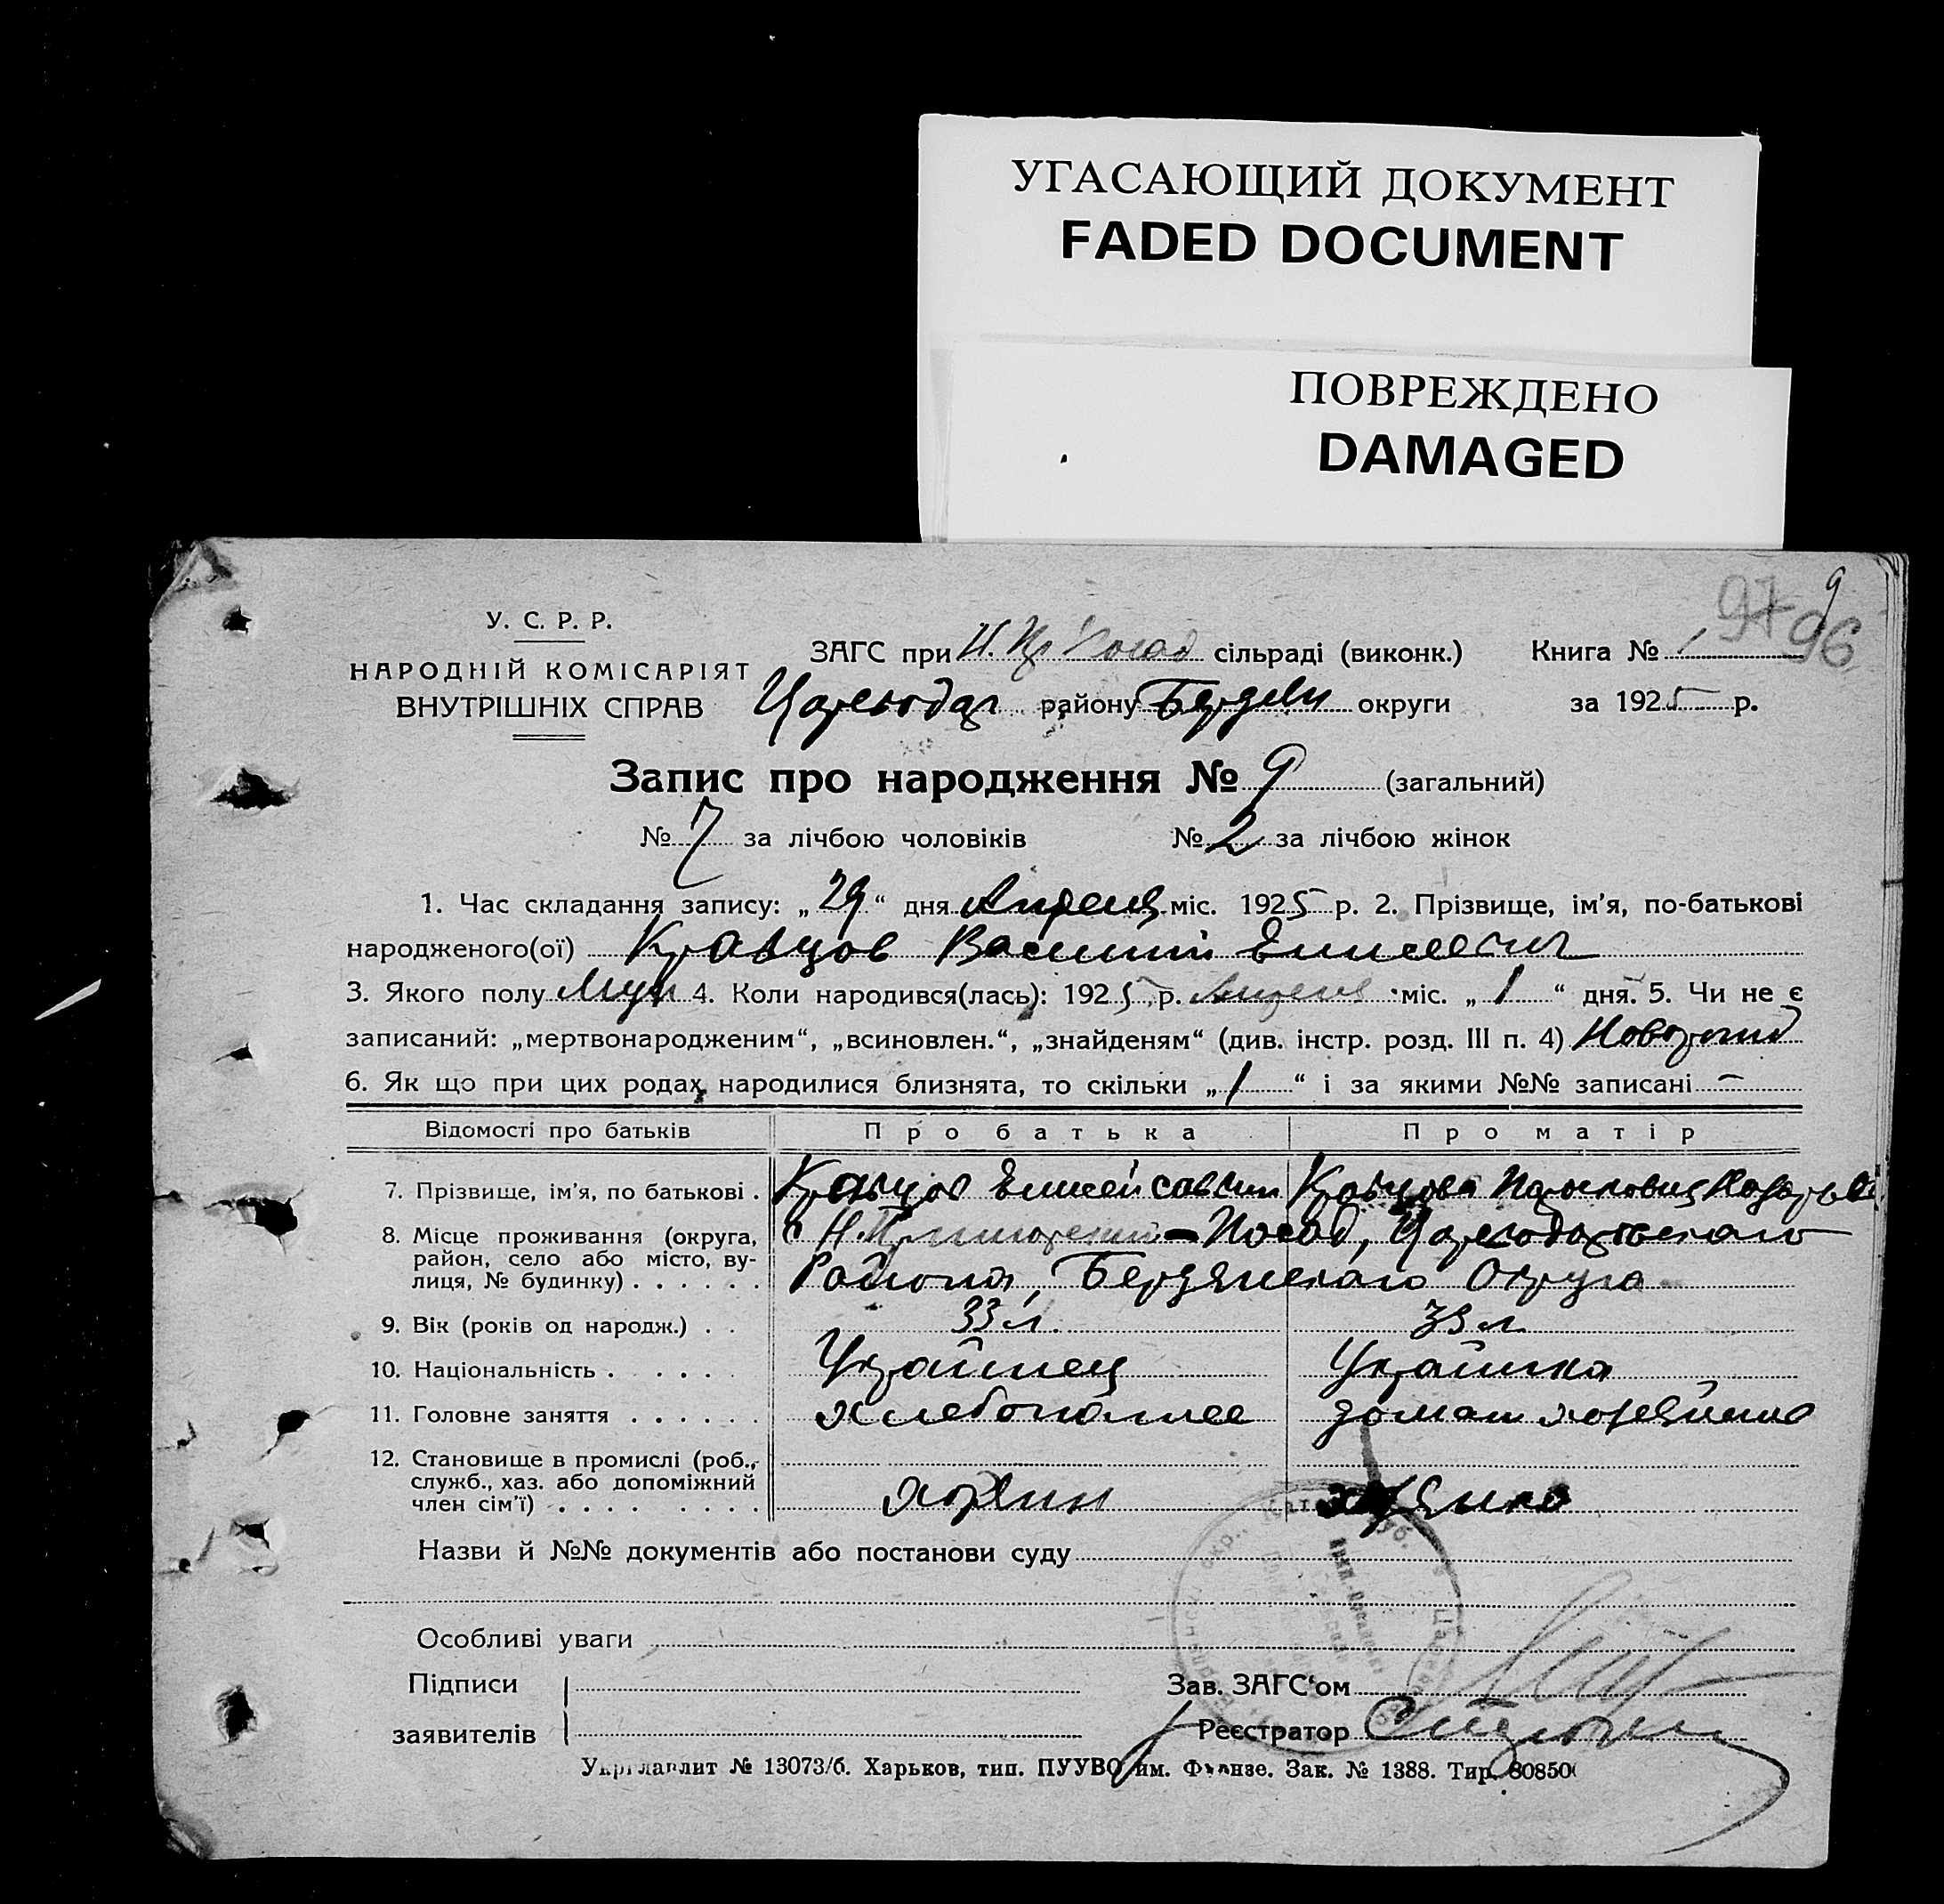 УГАСАЮЩИЙ ДОКУМЕНТ
FADED DOCUMENT
ПОВРЕЖДЕНО
DAMAGED
9
97
96
У. С. Р. Р.
НАРОДНІЙ КОМІСАРІЯТ
ВНУТРІШНІХ СПРАВ
ЗАГС при Н. Посад сільраді (виконк.) Книга № 1
району округи за 1925 р.
Запис про народження № 9 (загальний)
№ 7 за лічбою чоловіків № 2 за лічбою жінок
1. Час складання запису: „29“ дня Апреля міс. 1925 р. 2. Прізвище, ім’я, по-батькові
народженого(ої) Кравцов Василий Елисеевич
3. Якого полу Муж 4. Коли народився(лась): 1925 р. Апреля міс. „1“ дня. 5. Чи не є
записаний: „мертвонародженим“, „всиновлен.“, „знайденям“ (див. інстр. розд. III п. 4)
6. Як що при цих родах народилися близнята, то скільки „1“ і за якими №№ записані –
Відомості про батьків Про батька Про матір
7. Прізвище, ім’я, по батькові . Кравцов Елисей Кравцова
8. Місце проживання (округа, район, село або місто, вулиця, № будинку) . . . . . . Н. - Посад,
Района, Бердянскаго Округа
9. Вік (років од народж.) . . 33 л. 33 л.
10. Національність . . . . . Украинец Украинка
11. Головне заняття . . . . . . хлебопашес домаш хозяйство
12. Становище в промислі (роб., служб., хаз. або допоміжний член сім’ї) . . . . . . . . хозяин хозяйка
Назви й №№ документів або постанови суду
Особливі уваги
Підписи
заявителів
Зав. ЗАГС‘ом
Реєстратор
Укрглавліт № 13073/б. Харьков, тип. ПУУВО им. Фрунзе. Зак. № 1388. Тир. 80850